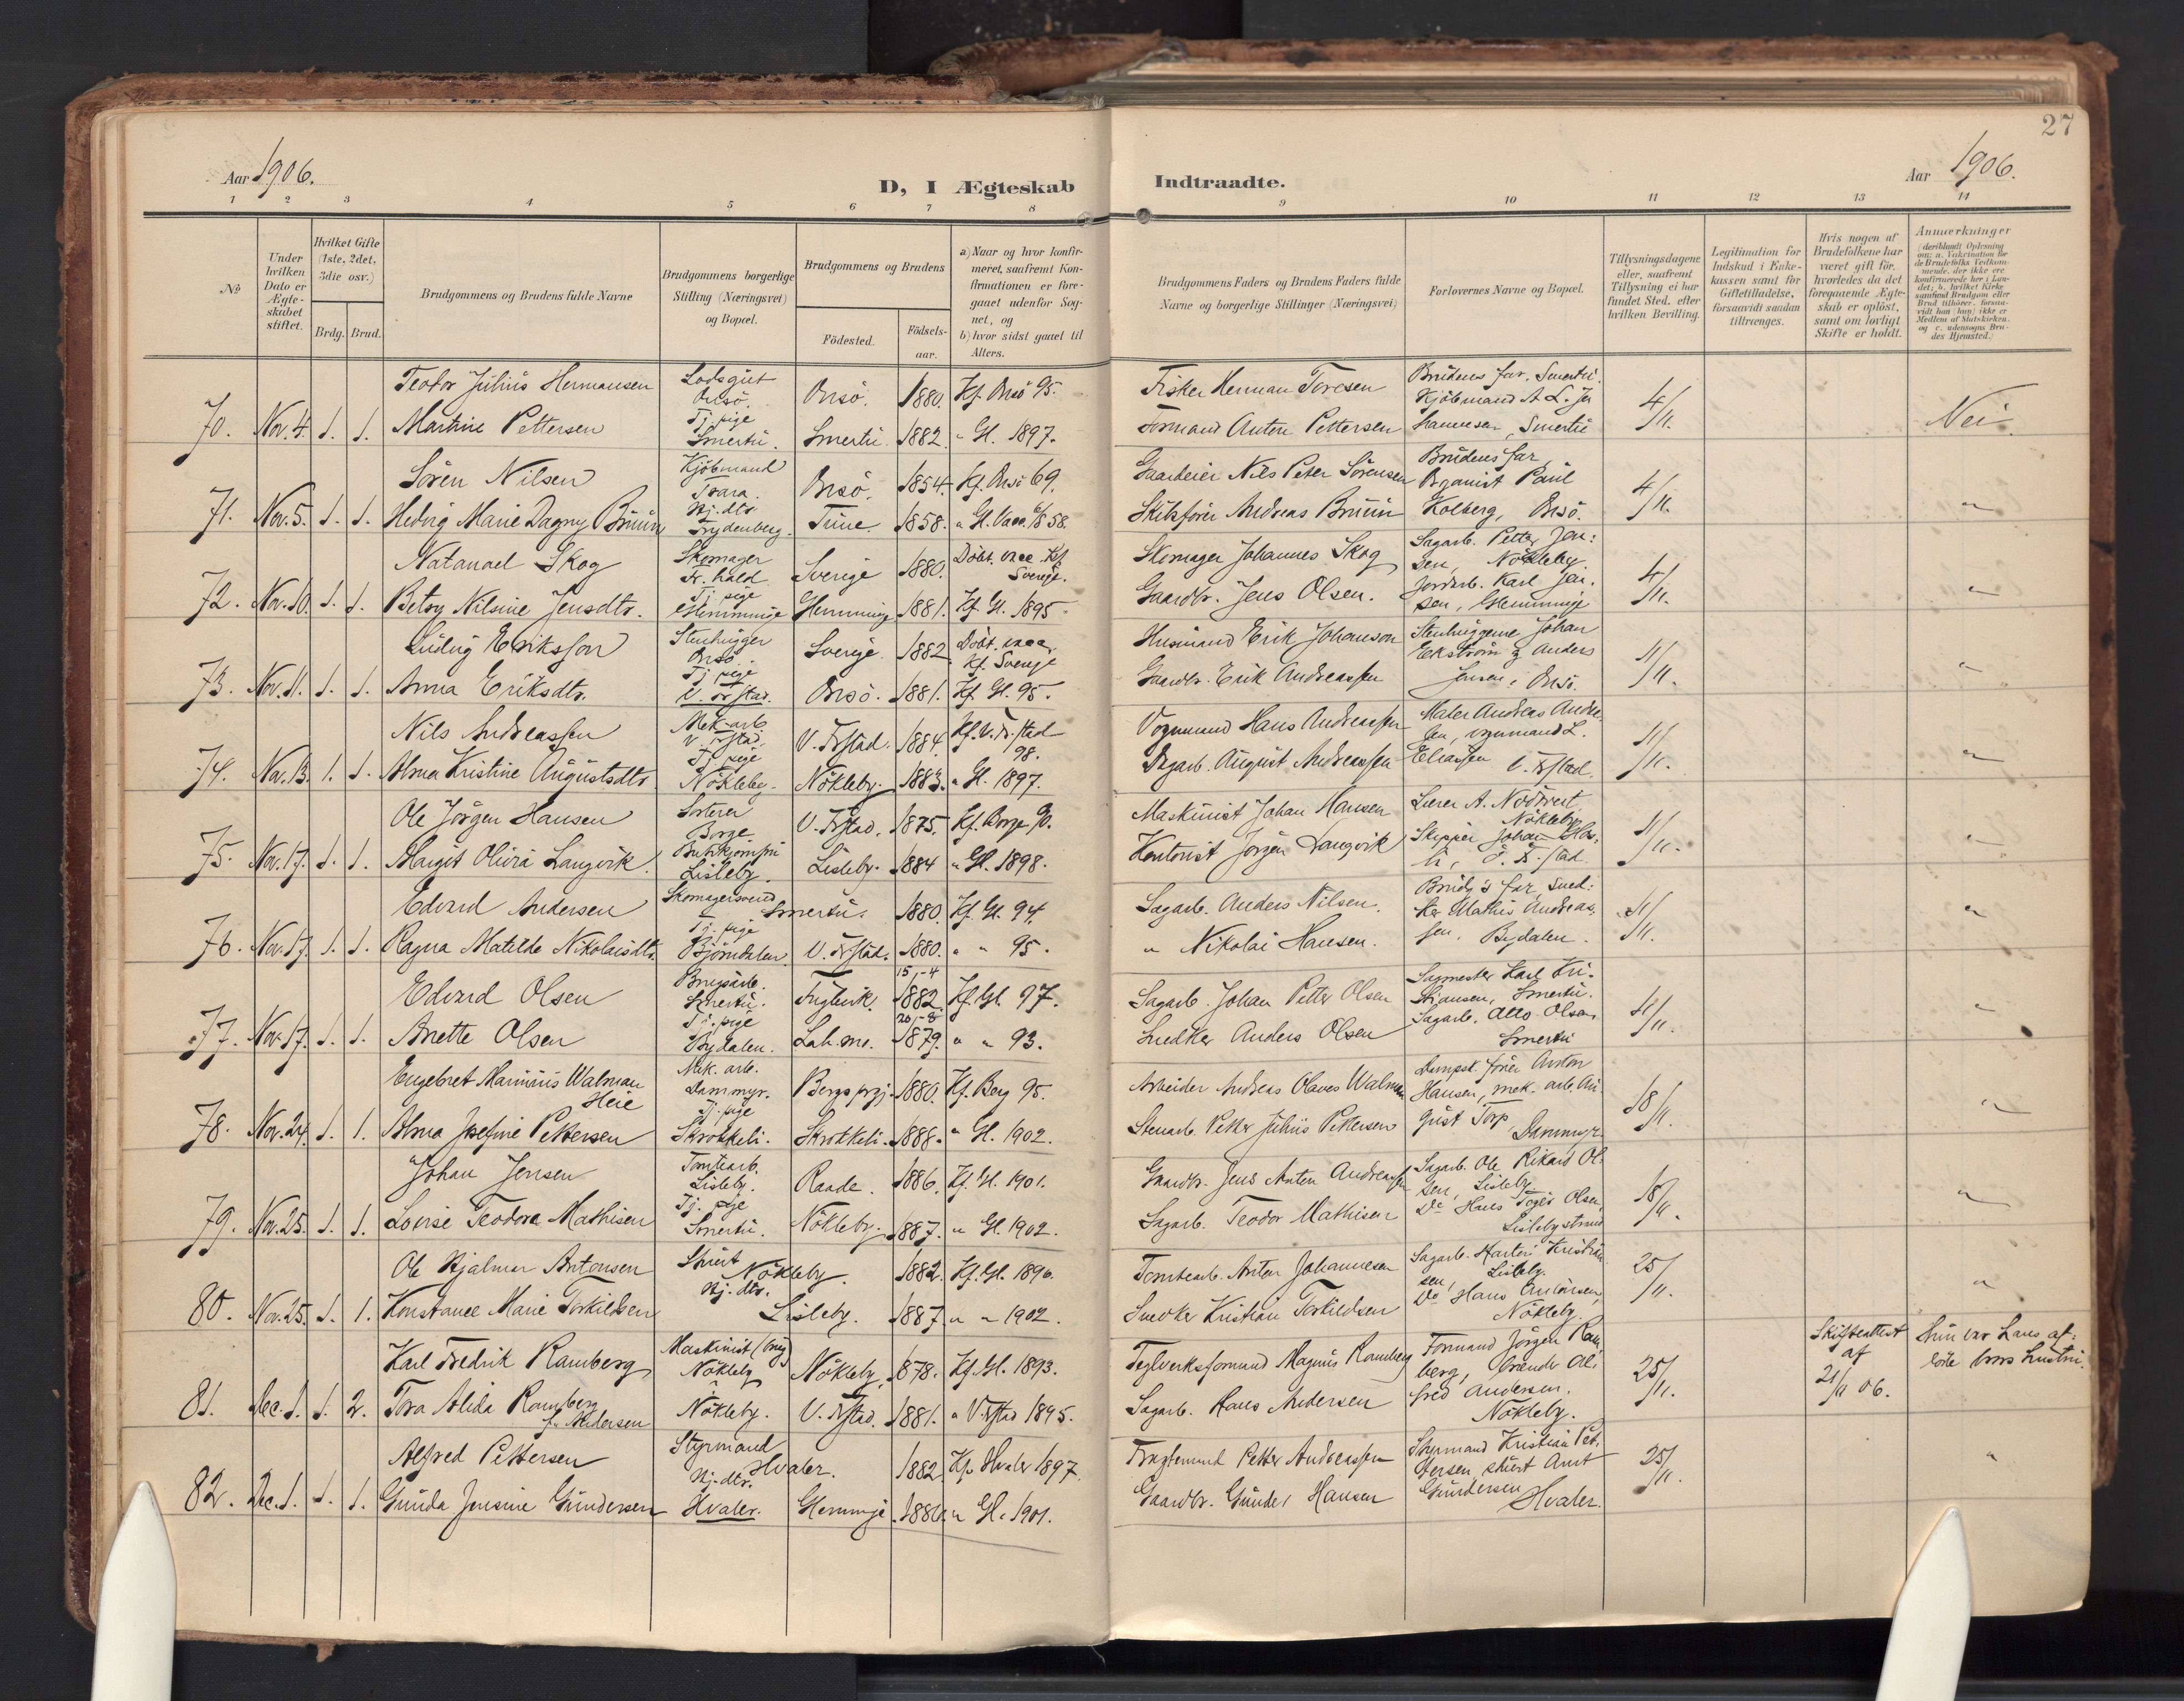 27
Aar 1906.
D, I Ægteskab Indtraadte.
Aar 1906.
1 2 3 4 5 6 7 8 9 10 11 12 13 14
No
Under hvilken Dato er Ægteskabet stiftet.
Hvilket Gifte (1ste, 2det, 3die osv.)
Brdg. Brud.
Brudgommens og Brudens fulde Navne
Brudgommens borgerlige Stilling (Næringsvei) og Bopæl.
Brudgommens og Brudens
Födested. Födsels-aar.
a) Naar og hvor konfirmeret, saafremt Konfirmationen er foregaaet udenfor Sognet, og
b) hvor sidst gaaet til Alters.
Brudgommens Faders og Brudens Faders fulde Navne og borgerlige Stillinger (Næringsvei)
Forlovernes Navne og Bopæl.
Tillysningsdagene eller, saafremt Tillysning ei har fundet Sted, efter hvilken Bevilling.
Legitimation for Indskud i Enkekassen samt for Giftetilladelse, forsaavidt saadan tiltrænges.
Hvis nogen af Brudefolkene har været gift för, hvorledes da det foregaaende Ægteskab er oplöst, samt om lovligt Skifte er holdt.
Anmærkninger
Teodor Julius Hermansen Lodsgut Onsö. Onsö. 1880. Kf. Onsö 95. Fisker Herman Toresen Brudens far, Smertu.
70. Nov. 4. 1. 1. Martine Pettersen Tj. pige Smertu. Smertu 1882 " Gl. 1897. Formand Anton Pettersen Kjöbmand A. L. Johannesen, Smertu 4/11. Nei.
Sören Nilsen Kjöbmand Onsö. 1854. Kf. Onsö 69. Gaardeier Nils Peter Sörensen Brudens far,
71. Nov. 5. 1. 1. Hedvig Marie Dagny Bruun Hj. dtr. Frydenberg. Tune 1858. Skibsförer Andreas Bruun Organist Paul Kolberg, Onsö. 4/11. "
Natanael Skog Skomager Fr. hald Sverige 1880. Döbt, vacc. Kf. Sverige. Skomager Johannes Skog Sagarb. Petter Jensen, Nökleby.
72. Nov. 10. 1. 1. Betsy Nilsine Jensdtr. Tj. pige Glemminge Glemminge 1881. Kf. Gl. 1895. Gaardbr. Jens Olsen. Jordarb. Karl Jensen, Glemminge 4/11. "
Ludvig Eriksson Stenhugger Onsö Sverige 1882 Döbt. vacc. Kf. Sverige Husmand Erik Johanson Stenhuggerne Johan
73. Nov. 11. 1. 1. Anna Eriksdtr. Tj. pige V. Fr.stad. Onsö. 1881. Kf. Gl. 95. Gaardbr. Erik Andreassen Ekström og Anders Jensen, Onsö. 11/11. "
Nils Andreassen Mek. arb. V. Fr.stad. V. Fr.stad. 1884. Kf. V. Fr.stad 98. Vognmand Hans Andreassen Maler Andreas Andersen, vognmand L.
74. Nov. 13. 1. 1. Alma Kristine Augustsdtr. Tj. pige Nökleby. Nökleby. 1883. " Gl. 1897. August Andreassen Eliassen V. Fr.stad. 11/11. "
Ole Jörgen Hansen Sorterer Borge V. Fr.stad. 1875. Kf. Borge 90. Maskinist Johan Hansen Lærer A. Nökleby
75. Nov. 17. 1. 1. Margit Olivia Langvik. Butikjomfru Lisleby. Lisleby. 1884 " Gl. 1898. Kontorist Jörgen Langvik Skipper Johan 11/11. "
Edvard Andersen Skomagersvend Smertu. 1880. Kf. Gl. 94. Sagarb. Anders Nilsen. Brudg's far, Snedker Mathis Andreassen, Bydalen.
76. Nov. 17. 1. 1. Ragna Matilde Nikolaisdtr. Tj. pige Björndalen. V. Fr.stad. 1880. " " 95. " Nikolai Hansen. 11/11. "
Edvard Olsen Brugsarb. Smertu. Fuglevik. 15/4 1882 Kf. Gl. 97. Sagarb. Johan Petter Olsen Sagmester Karl Kristiansen, Smertu.
77. Nov. 17. 1. 1. Anette Olsen Tj. pige Bydalen. 20/8 1879. " " 93. Snedker Anders Olsen Sagarb. Otto Olsen, Smertu 11/11. "
Engebret Marinius Walman Heie Mek. arb. Dammyr. Bergs prgj. 1880. Kf. Berg 95. Arbeider Andreas Olaves Walman Dampsk. förer Anton Hansen, mek. arb. August Torp, Dammyr.
78. Nov. 24. 1. 1. Alma Josefine Pettersen Tj. pige Skrokkeli. Skrokkeli. 1888. " Gl. 1902. Stenarb. Petter Julius Pettersen 18/11. "
Johan Jensen Tomtearb. Lisleby. Raade. 1886. Kf. Gl. 1901. Gaardbr. Jens Anton Andreassen Sagarb. Ole Rikard Olsen, Lisleby
79. Nov. 25. 1. 1. Lovise Teodora Mathisen Tj. pige Smertu. Nökleby. 1887. " Gl. 1902. Sagarb. Teodor Mathisen Do Hans Olsen, Lislebystrand 18/11. "
Ole Hjalmar Antonsen Nökleby. 1882. Kf. Gl. 1896. Tomtearb. Anton Johannesen Sagarb. Martin Kristiansen, Lisleby.
80. Nov. 25. 1. 1. Konstance Marie Torkildsen Hj. dtr. Lisleby. 1887 " " 1902. Snedker Kristian Torkildsen Do Hans Nökleby. 25/11. "
Karl Fredrik Ramberg Maskinist (brug) Nökleby Nökleby. 1878. Kf. Gl. 1893. Teglverksformand Magnus Ramberg Formand Jörgen Ramberg, brænder Alfred Andersen. Nökleby. Skifteattest af 21/11 06. Hun var Hans afdöde brors hustru.
81. Dec. 1. 1. 2. Tora Alida Ramberg f. Andersen Nökleby. V. Fr.stad. 1881. " V. Fr.stad 1895. Sagarb. Hans Andersen 25/11.
Alfred Pettersen Styrmand Hvaler. 1882 Kf. Hvaler 1897. Fragtemand Petter Andreassen Styrmand Kristian Pettersen,
82. Dec. 1. 1. 1. Gunda Jensine Gundersen Hj. dtr. Hvaler. Glemminge. 1886. " Gl. 1901. Gaardbr. Gunder Hansen Gundersen Hvaler. 25/11. "